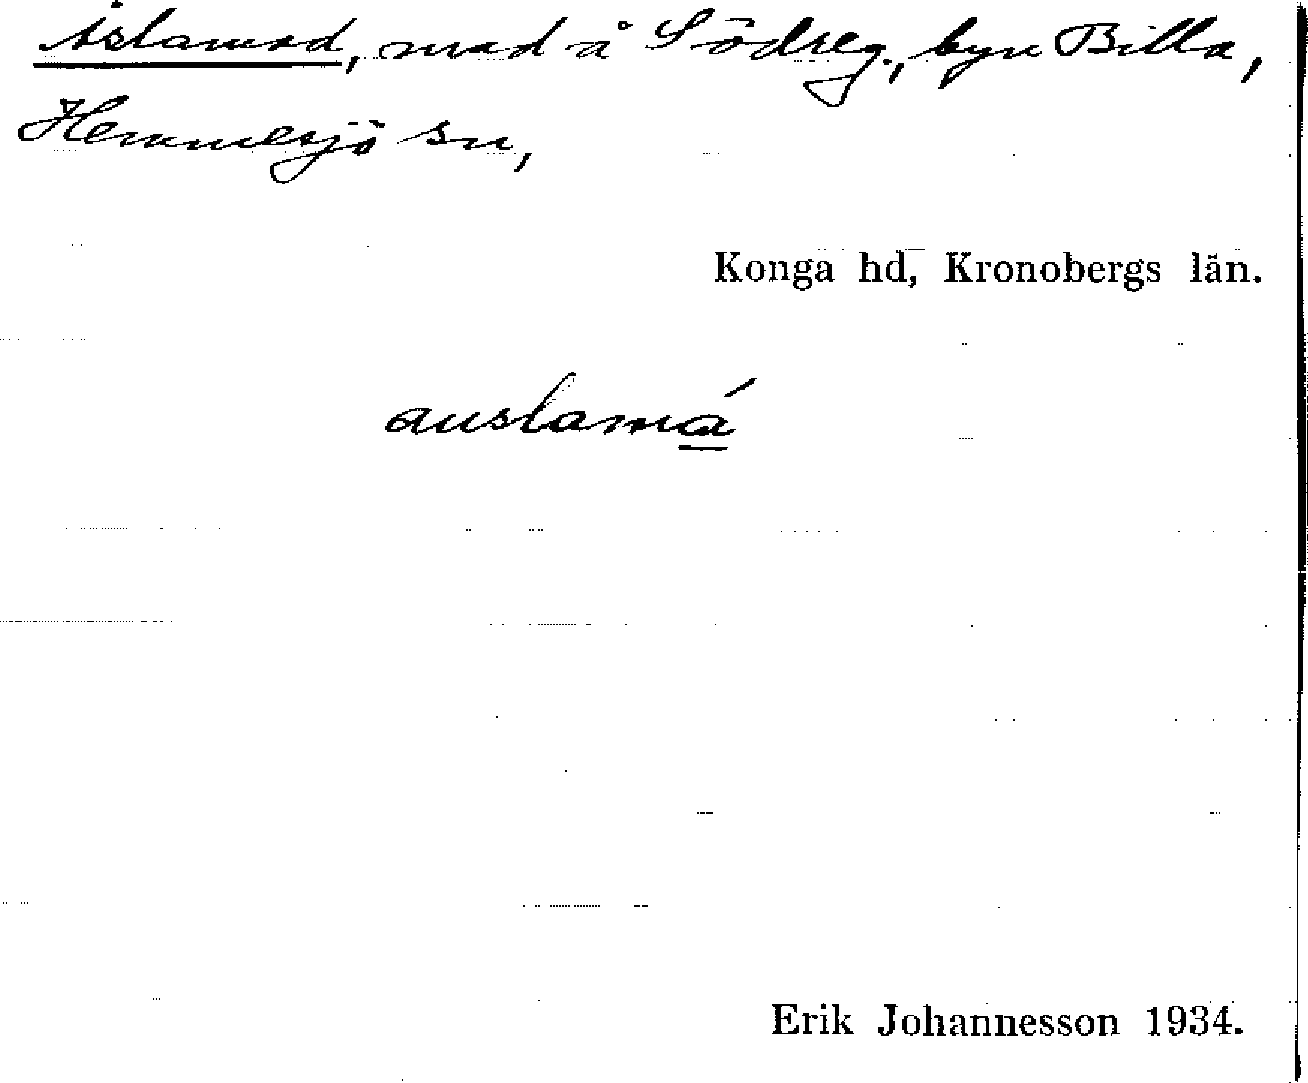 Åslamad, mad å Södreg., byn Billa,
Hemmesjö sn,
Konga hd, Kronobergs län.
auslamá
Erik Johannesson 1934.